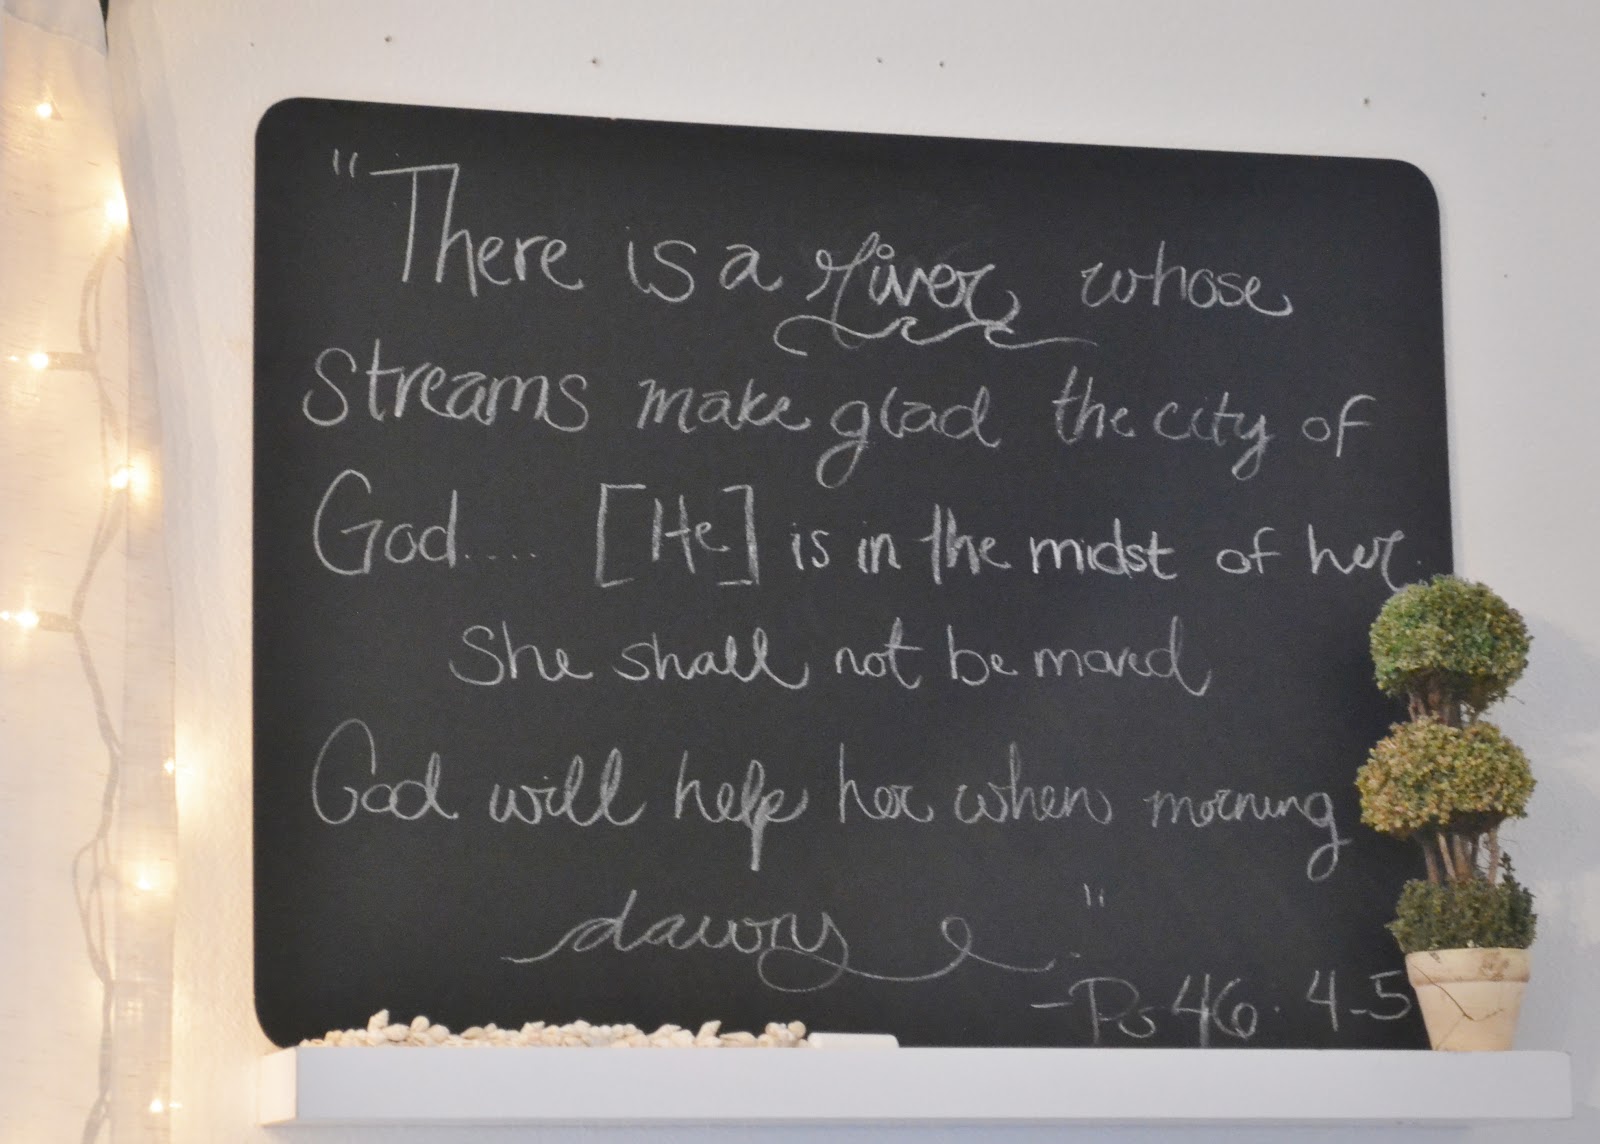 "There is a river whose
streams make glad the city of
God..... [He] is in the midst of her.
She shall not be moved
God will help her when morning
dawns."
-Ps 46. 4-5